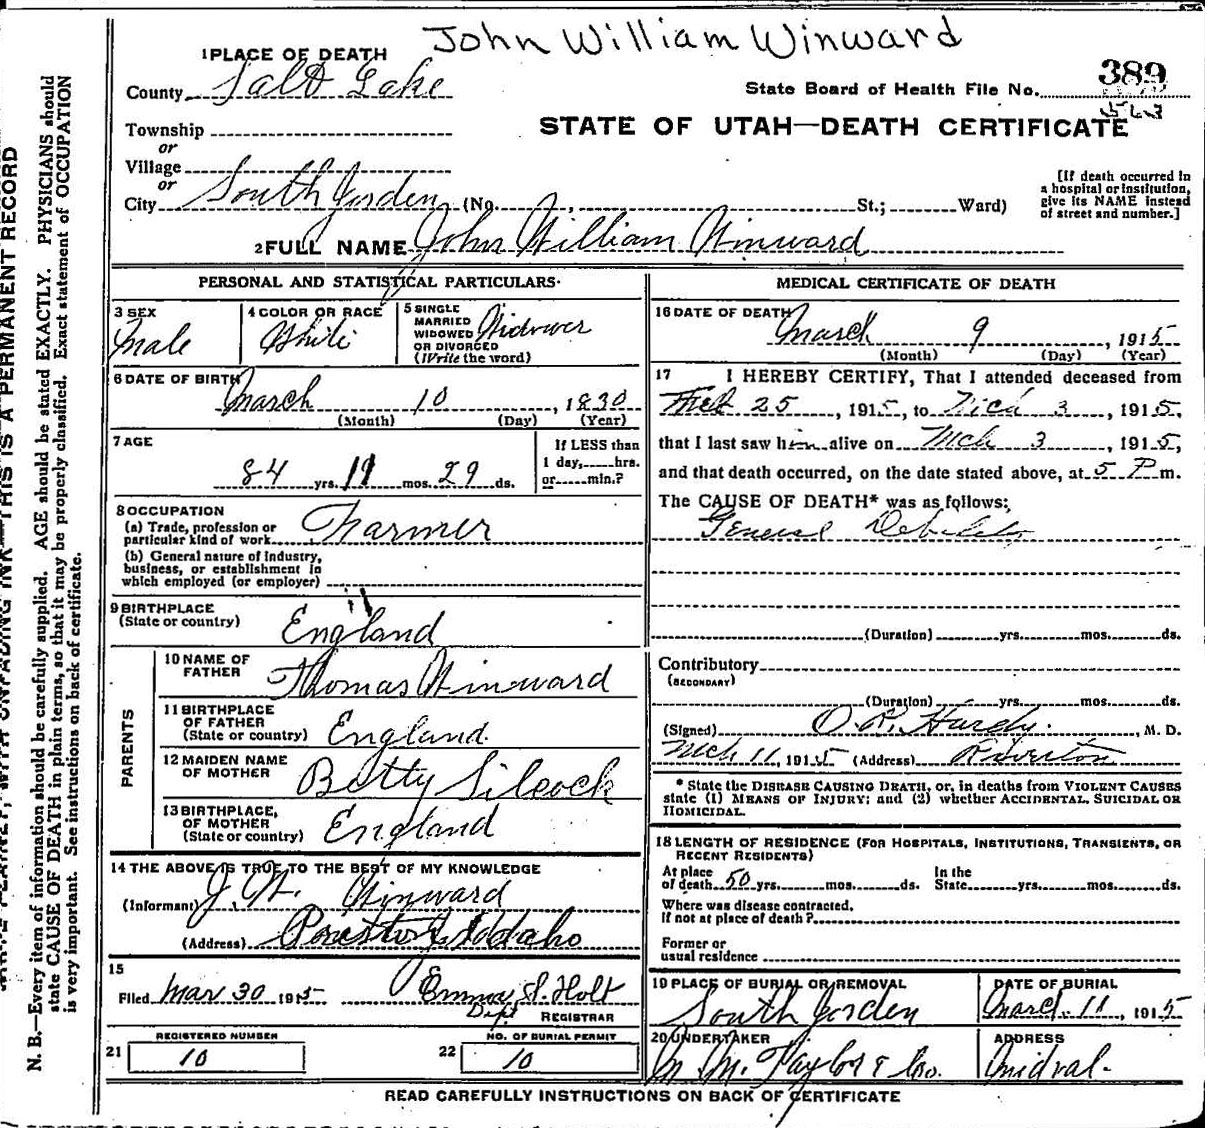 John William Winward
1 PLACE OF DEATH
County Salt Lake
State Board of Health File No. 389
563
STATE OF UTAH—DEATH CERTIFICATE
Township
or
Village
or
City South Jorden (No. , St.; Ward)
[If death occurred in a hospital or institution, give its NAME instead of street and number.]
2 FULL NAME John William Winward
PERSONAL AND STATISTICAL PARTICULARS
3 SEX
Male
4 COLOR OR RACE
White
5 SINGLE MARRIED WIDOWED OR DIVORCED (Write the word)
Widower
6 DATE OF BIRTH
March 10, 1830
(Month) (Day) (Year)
7 AGE
84 yrs. 11 mos. 29 ds.
If LESS than
1 day, hrs.
or min.?
8 OCCUPATION
(a) Trade, profession or
particular kind of work Farmer
(b) General nature of Industry,
business, or establishment in
which employed (or employer)
9 BIRTHPLACE
(State or country)
England
PARENTS
10 NAME OF FATHER
Thomas Winward
11 BIRTHPLACE OF FATHER
(State or country) England
12 MAIDEN NAME OF MOTHER
Betty Silcock
13 BIRTHPLACE, OF MOTHER
(State or country) England
14 THE ABOVE IS TRUE TO THE BEST OF MY KNOWLEDGE
(Informant) J. W. Winward
(Address) Preston Iddaho
15
Filed Mar 30 1915 Emma S. Holt
Dept REGISTRAR
REGISTERED NUMBER
21 10
NO. OF BURIAL PERMIT
22 10
MEDICAL CERTIFICATE OF DEATH
16 DATE OF DEATH
March 9, 1915
(Month) (Day) (Year)
17 I HEREBY CERTIFY, That I attended deceased from
25, 1915, to 3, 1915,
that I last saw him alive on Mch 3, 1915,
and that death occurred, on the date stated above, at 5 P m.
The CAUSE OF DEATH* was as follows:
General Debility
(Duration) yrs. mos. ds.
Contributory
(SECONDARY)
(Duration) yrs. mos. ds.
(Signed) O. R. Hardy, M. D.
Mch 11, 1915 (Address) Riverton
* State the DISEASE CAUSING DEATH, or, in deaths from VIOLENT CAUSES
state (1) MEANS OF INJURY; and (2) whether ACCIDENTAL, SUICIDAL OR
HOMICIDAL.
18 LENGTH OF RESIDENCE (FOR HOSPITALS, INSTITUTIONS, TRANSIENTS, OR
RECENT RESIDENTS)
At place
of death 50 yrs. mos. ds.
In the
State yrs. mos. ds.
Where was disease contracted,
If not at place of death?
Former or
usual residence
19 PLACE OF BURIAL OR REMOVAL
South Jorden
DATE OF BURIAL
March 11, 1915
20 UNDERTAKER
M. Taylor & Co.
ADDRESS
Midval.
READ CAREFULLY INSTRUCTIONS ON BACK OF CERTIFICATE
WRITE PLAINLY, WITH UNFADING INK—THIS IS A PERMANENT RECORD
N. B.—Every item of information should be carefully supplied. AGE should be stated EXACTLY. PHYSICIANS should
state CAUSE OF DEATH in plain terms, so that it may be properly classified. Exact statement of OCCUPATION
is very important. See instructions on back of certificate.